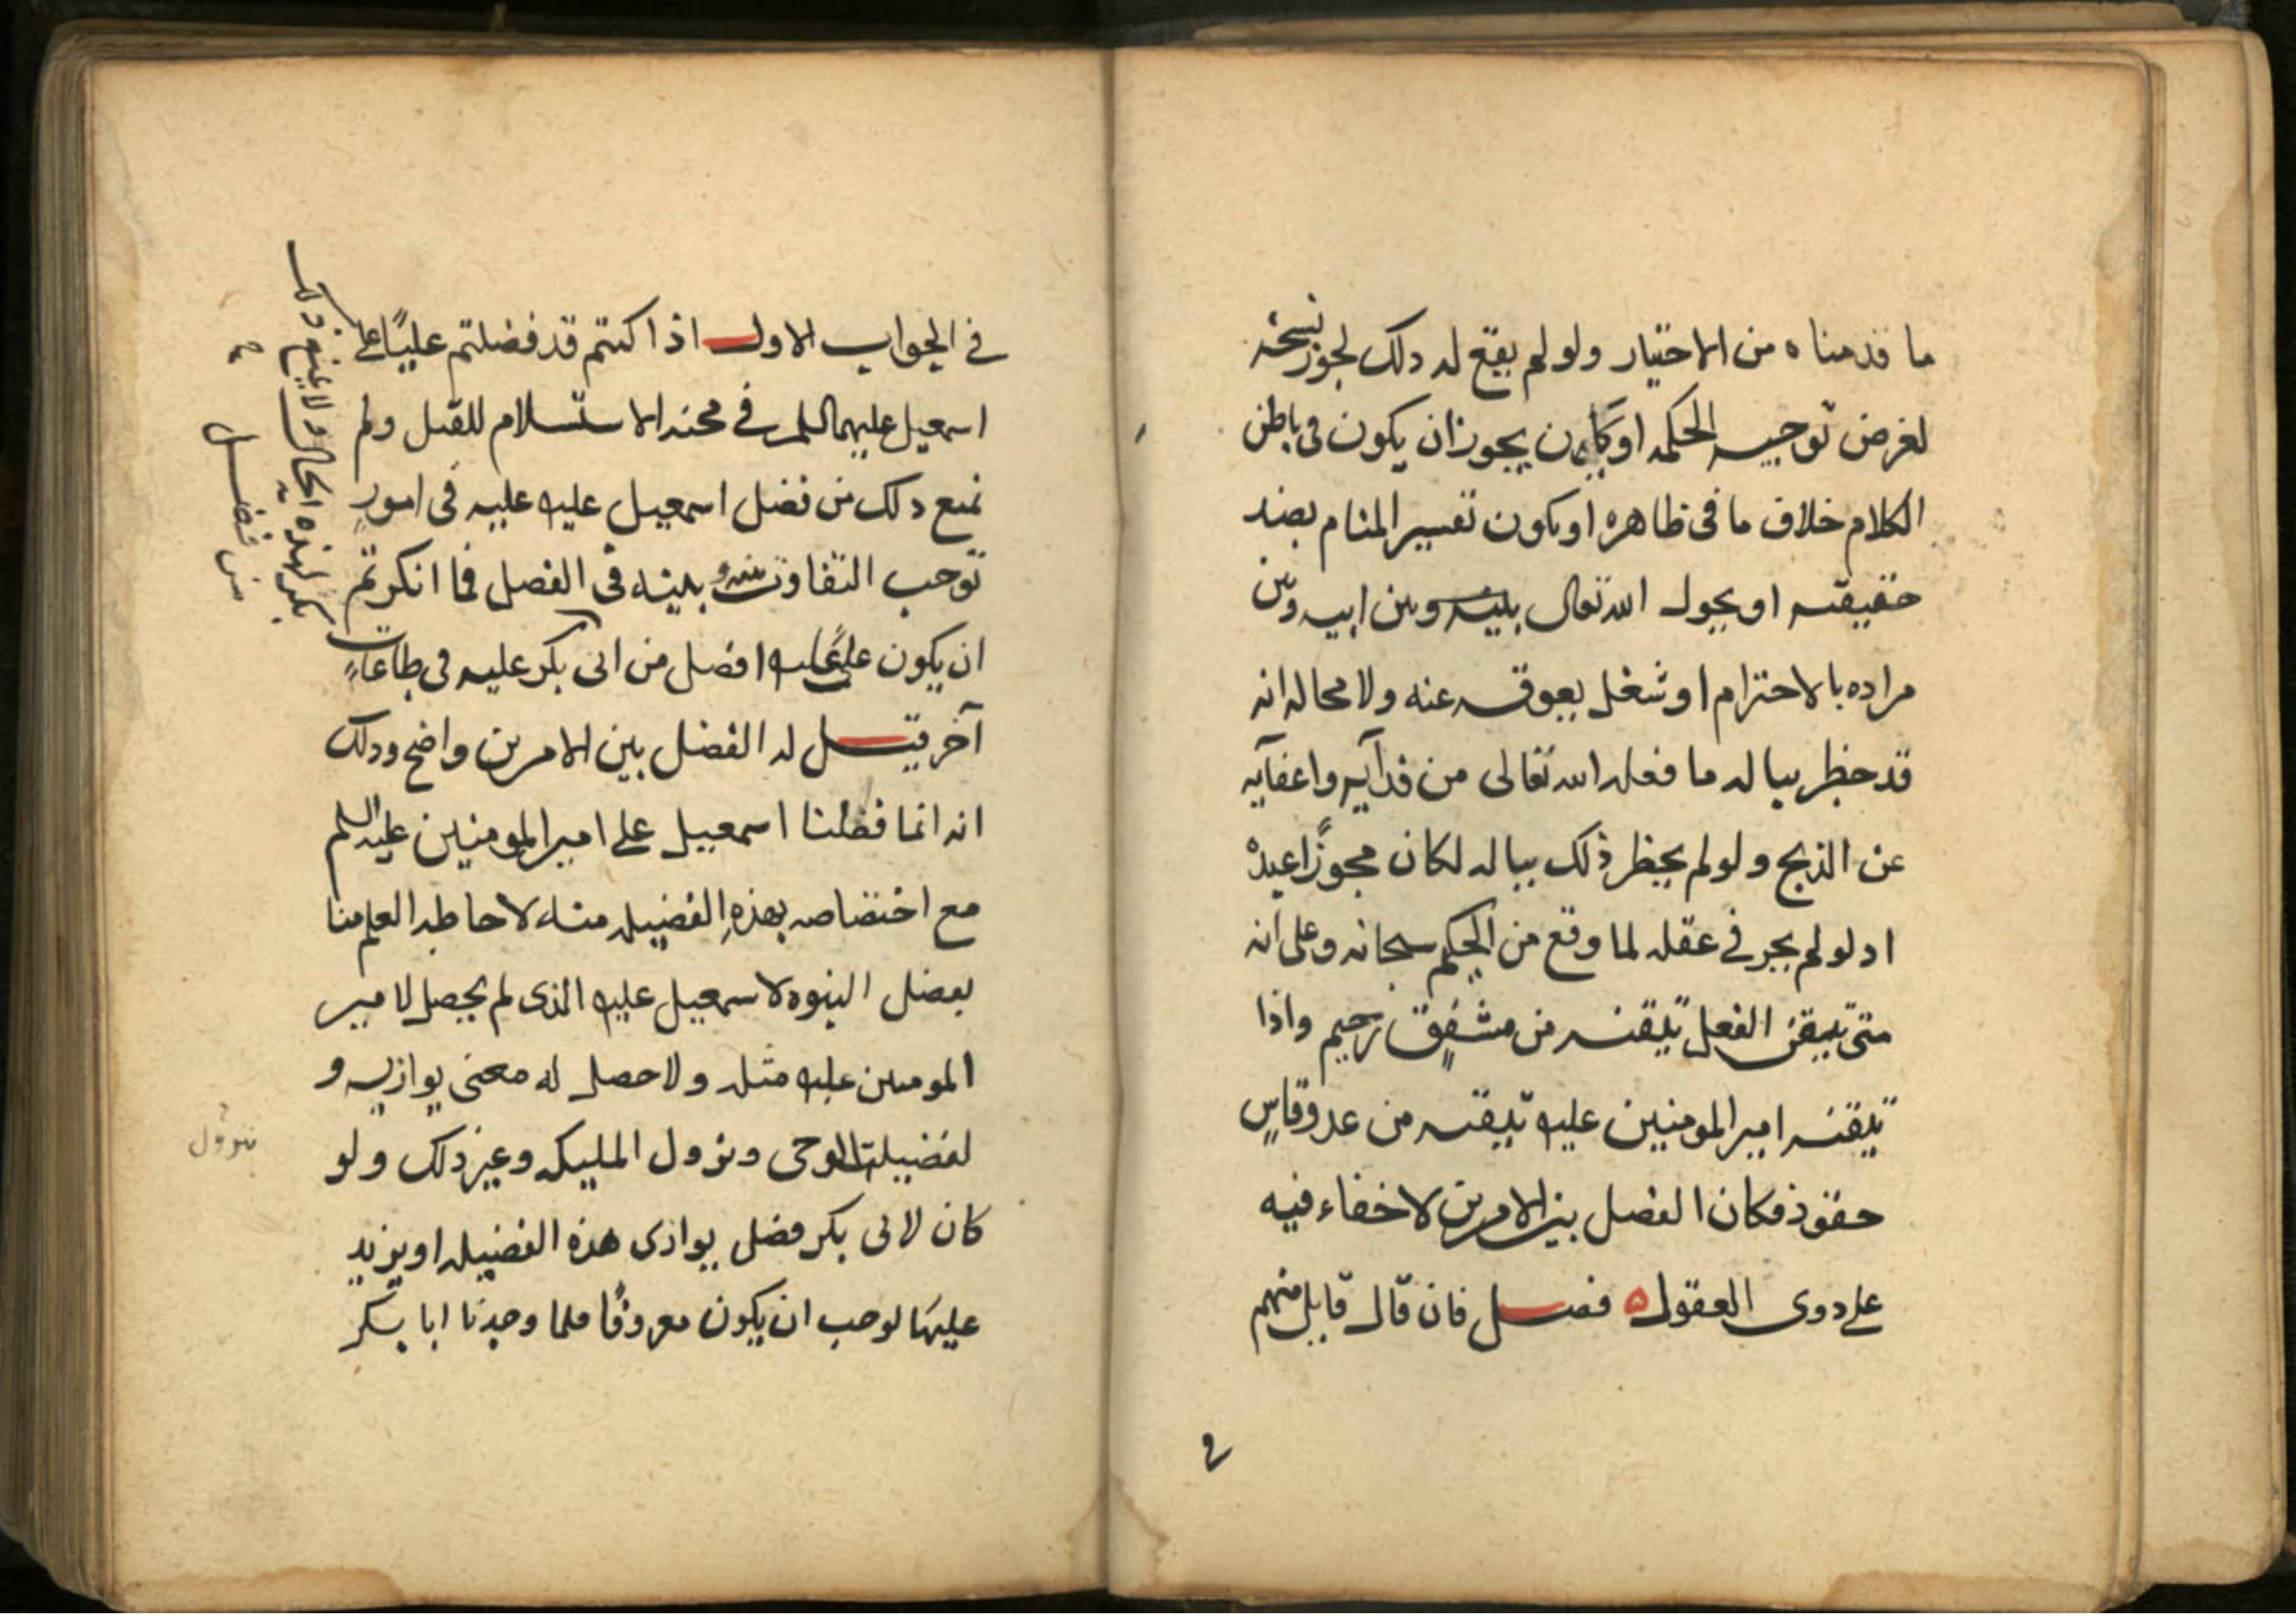 ما قدمناه من الاختيار ولو لم يقع له دلك لجوز نسخه
لغرض توجبه الحكمه او كان يجوز ان يكون فى باطن
الكلام خلاف ما فى ظاهره او يكون تفسير المنام بضد
حقيقته او يحول الله تعالى بينه وبين ابيه وبين
مراده بالاحترام او شغل يعوقه عنه ولا محاله انه
قد خطر بباله ما فعله الله تعالى من فدآيه واعفآيه
عن الذبح ولو لم يخطر ذلك بباله لكان مجوزًا عنده
اد لو لم يجز فى عقله لما وقع من الحكيم سبحانه وعلى انه
متى تيقن الفعل تيقنه من مشفقٍ رحيم واذا
تيقنه امير المومنين عليه تيقنه من عدو قاسٍ
حقود فكان الفصل بين الامرين لا خفاء فيه
على دوى العقول ه فصل فان قال قايل منهم
فى
فى الجواب الاول اذا كنتم قد فضلتم عليًا على
اسمعيل عليهما السلم فى محنه الاستسلام للقتل ولم
نمنع دلك من فضل اسمعيل عليه عليه فى امورٍ
توجب التفاوت بينه وبينه فى الفضل فما انكرتم
ان يكون على عليه افضل من ابى بكر عليه فى طاعاتٍ
آخر قيل له الفضل بين الامرين واضح ودلك
انه انما فضلنا اسمعيل على امير المومنين عليه السلم
مع اختصاصه بهذهِ الفضيله منه لاحاطه العلم منا
بفضل النبوه لاسمعيل عليه الذى لم يحصل لامير
المومنين عليه مثله ولا حصل له معنى يوازيه و
لفضيلة الوحى ونزول المليكه وغير ذلك ولو
كان لابى بكر فضل يوازى هذه الفضيله او يزيد
عليها لوجب ان يكون معروفًا فلما وجدنا ابا بكر
بكر لهذه الحال ولا يمنع ذلك
من فضل
نزول